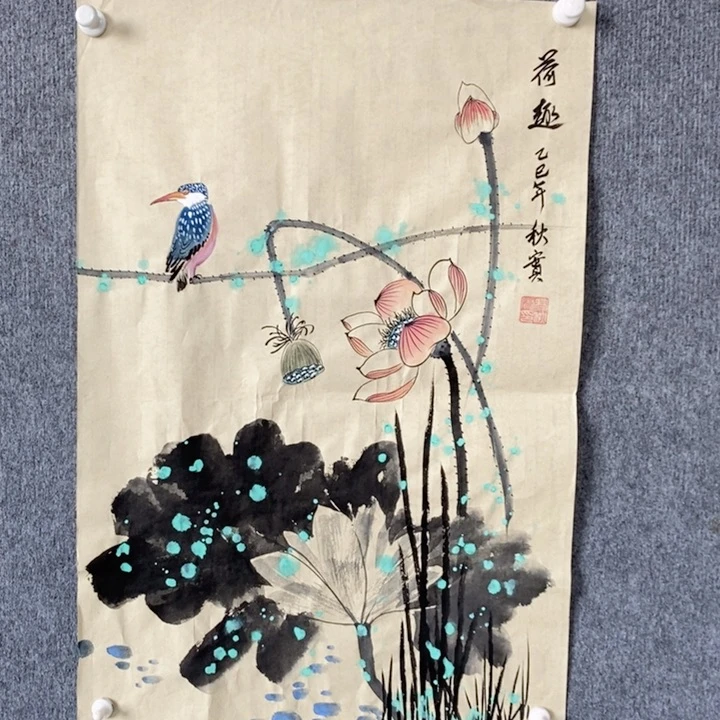 荷趣
乙巳年秋實